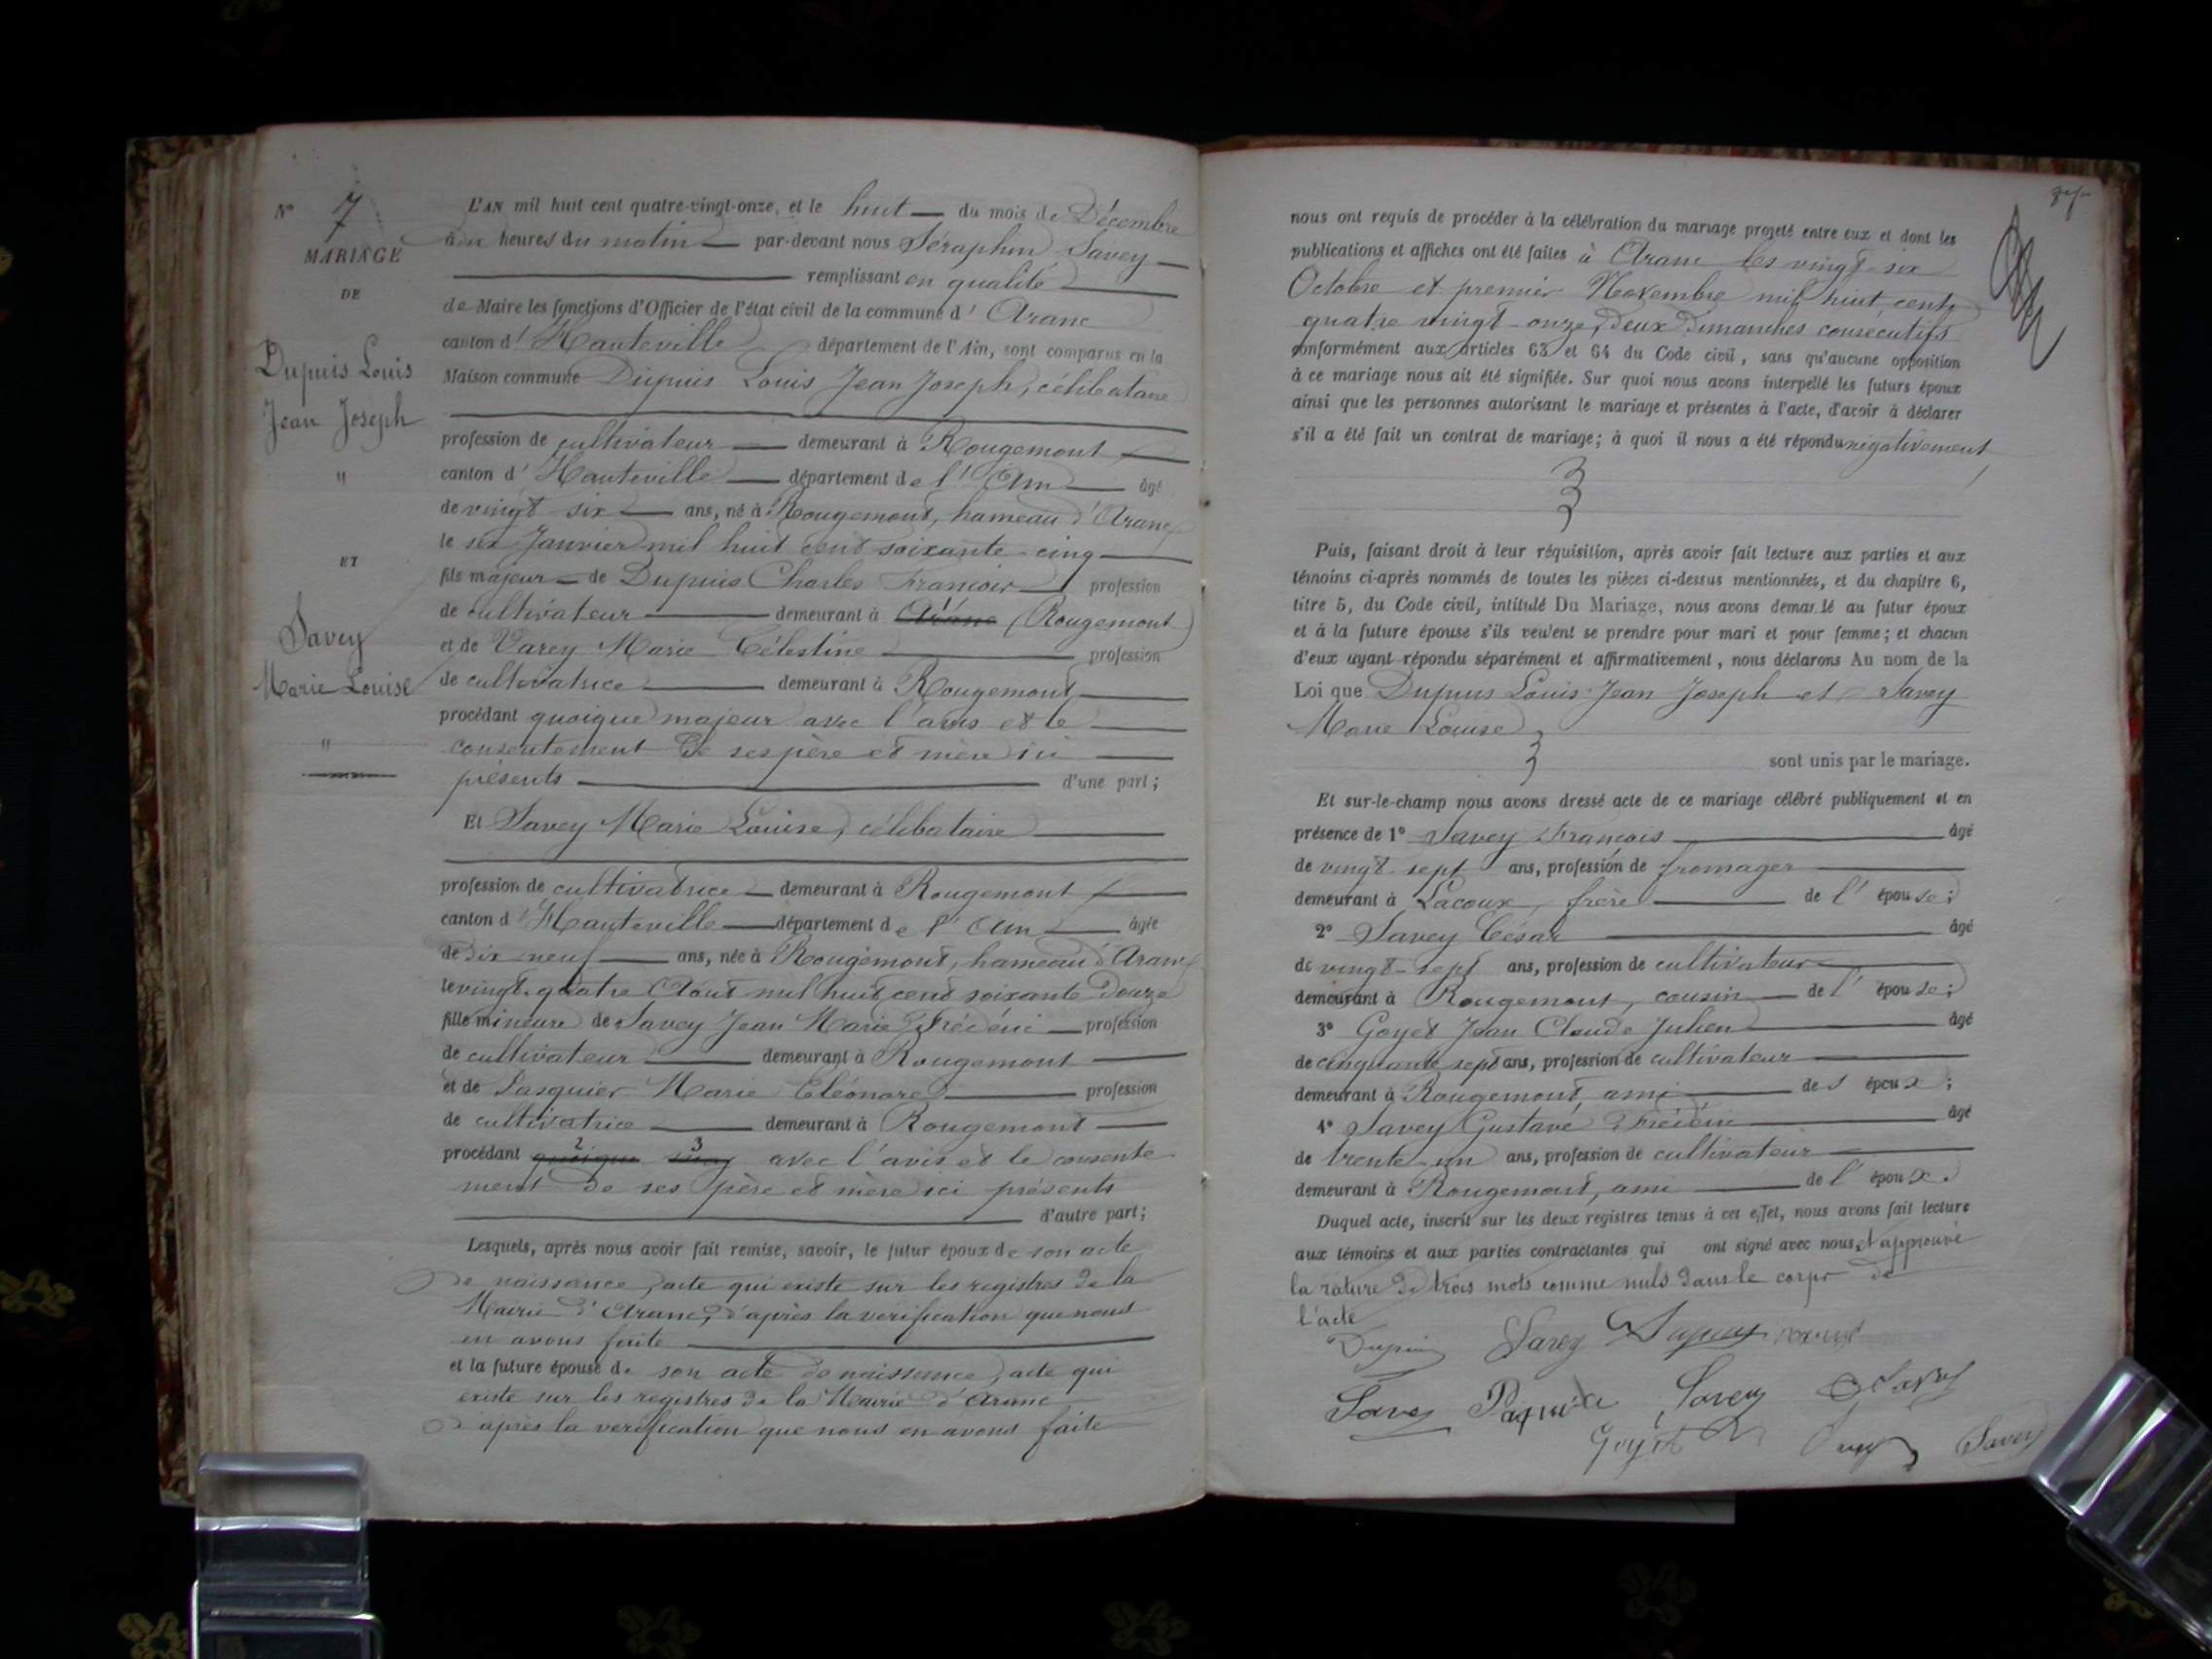 N° 7
MARIAGE
DE
Dupuis Louis
Jean Joseph
"
ET
Savey
Marie Louise
"
L'AN mil huit cent quatre-vingt-onze, et le huit du mois de Décembre
à dix heures du matin par-devant nous Séraphin Savey
remplissant en qualité
de Maire les fonctions d'Officier de l'état civil de la commune d' Aranc
canton d' Hauteville département de l'Ain, sont comparus en la
Maison commune Dupuis Louis Jean Joseph, célibataire
profession de cultivateur demeurant à Rougemont
canton d' Hauteville département de l'Ain âgé
de vingt-six ans, né à Rougemont, hameau d'Aranc
le six Janvier mil huit cent soixante-cinq
fils majeur de Dupuis Charles François profession
de cultivateur demeurant à Aranc (Rougemont)
et de Varey Marie Célestine profession
de cultivatrice demeurant à Rougemont
procédant quoique majeur avec l'avis et le
consentement de ses père et mère ici
présents d'une part;
Et Savey Marie Louise, célibataire
profession de cultivatrice demeurant à Rougemont
canton d' Hauteville département de l'Ain âgée
de dix-neuf ans, née à Rougemont, hameau d'Aranc
le vingt-quatre Août mil huit cent soixante-douze
fille mineure de Savey Jean Marie Frédéric profession
de cultivateur demeurant à Rougemont
et de Pasquier Marie Eléonore profession
de cultivatrice demeurant à Rougemont
procédant quoique 2 maj 3 avec l'avis et le consente
ment de ses père et mère ici présents
d'autre part;
Lesquels, après nous avoir fait remise, savoir, le futur époux de son acte
de naissance, acte qui existe sur les registres de la
Mairie d'Aranc, d'après la vérification que nous
en avons faite
et la future épouse de son acte de naissance, acte qui
existe sur les registres de la Mairie d'Aranc
d'après la vérification que nous en avons faite
nous ont requis de procéder à la célébration du mariage projeté entre eux et dont les
publications et affiches ont été faites à Aranc les vingt-six
Octobre et premier Novembre mil huit cent
quatre vingt-onze, deux Dimanches consécutifs
conformément aux articles 63 et 64 du Code civil, sans qu'aucune opposition
à ce mariage nous ait été signifiée. Sur quoi nous avons interpellé les futurs époux
ainsi que les personnes autorisant le mariage et présentes à l'acte, d'avoir à déclarer
s'il a été fait un contrat de mariage; à quoi il nous a été répondu négativement
Puis, faisant droit à leur réquisition, après avoir fait lecture aux parties et aux
témoins ci-après nommés de toutes les pièces ci-dessus mentionnées, et du chapitre 6,
titre 5, du Code civil, intitulé Du Mariage, nous avons demandé au futur époux
et à la future épouse s'ils veulent se prendre pour mari et pour femme; et chacun
d'eux ayant répondu séparément et affirmativement, nous déclarons Au nom de la
Loi que Dupuis Louis Jean Joseph et Savey
Marie Louise
sont unis par le mariage.
Et sur-le-champ nous avons dressé acte de ce mariage célébré publiquement et en
présence de 1° Savey François âgé
de vingt-sept ans, profession de fromager
demeurant à Lacoux, frère de l'épouse;
2° Savey César âgé
de vingt-sept ans, profession de cultivateur
demeurant à Rougemont, cousin de l'épouse;
3° Goyet Jean Claude Julien âgé
de cinquante sept ans, profession de cultivateur
demeurant à Rougemont, ami de l'époux;
4° Savey Gustave Frédéric âgé
de trente-un ans, profession de cultivateur
demeurant à Rougemont, ami de l'époux.
Duquel acte, inscrit sur les deux registres tenus à cet effet, nous avons fait lecture
aux témoins et aux parties contractantes qui ont signé avec nous, et approuvé
la rature de trois mots comme nuls dans le corps de
l'acte
Dupuis Savey Dupuis
Savey Pasquier Savey Savey
Goyet Savey